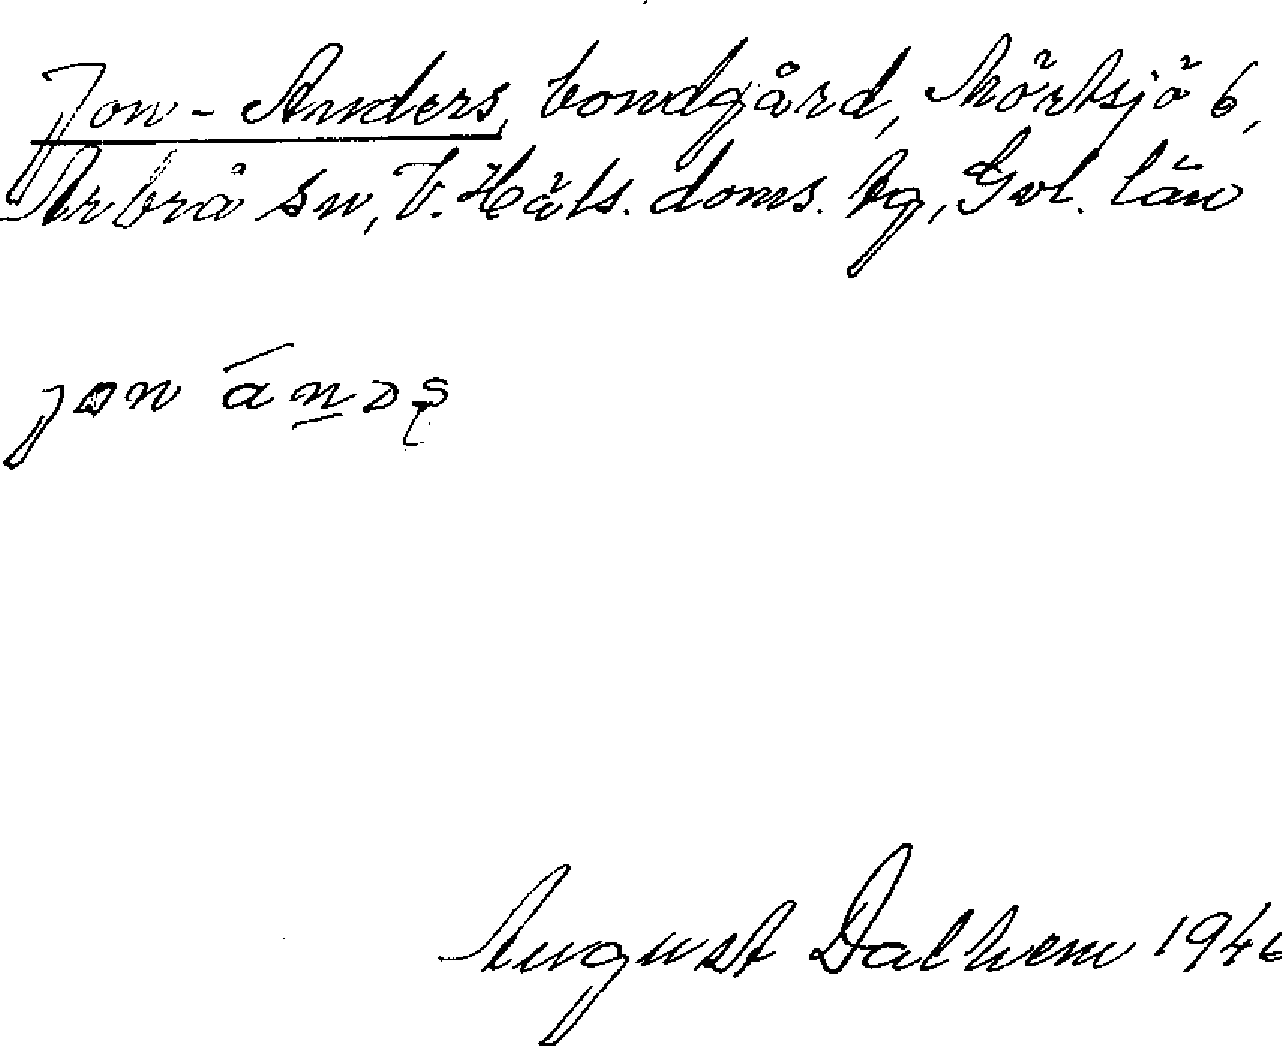 Jon-Anders, bondgård, Mörtsjö 6,
Arbrå sn, V. Häls. doms. tg, Gvl. län
jon ánds
August Dalhem 1946